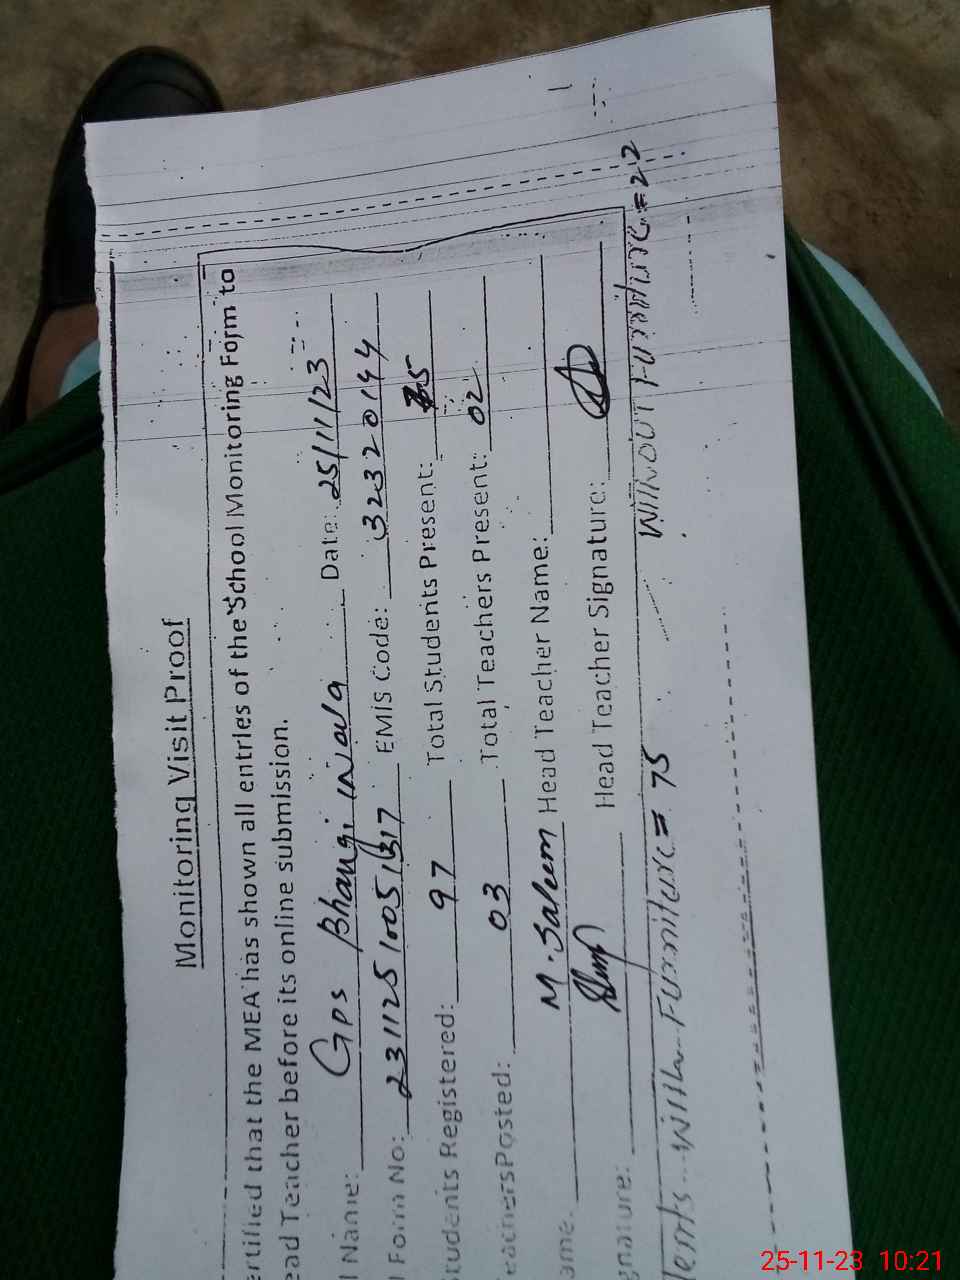 Monitoring Visit Proof
ertified that the MEA has shown all entries of the School Monitoring Form to
ead Teacher before its online submission.
l Name: GPS Bhangi wala Date: 25/11/23
l Form No: 231125 1005 1317 EMIS Code: 32320144
tudents Registered: 97 Total Students Present: 75
eachers Posted: 03 Total Teachers Present: 02
ame. M. Saleem Head Teacher Name:
gnature: Head Teacher Signature:
With Furniture = 75 Without Furniture = 22
25-11-23 10:21